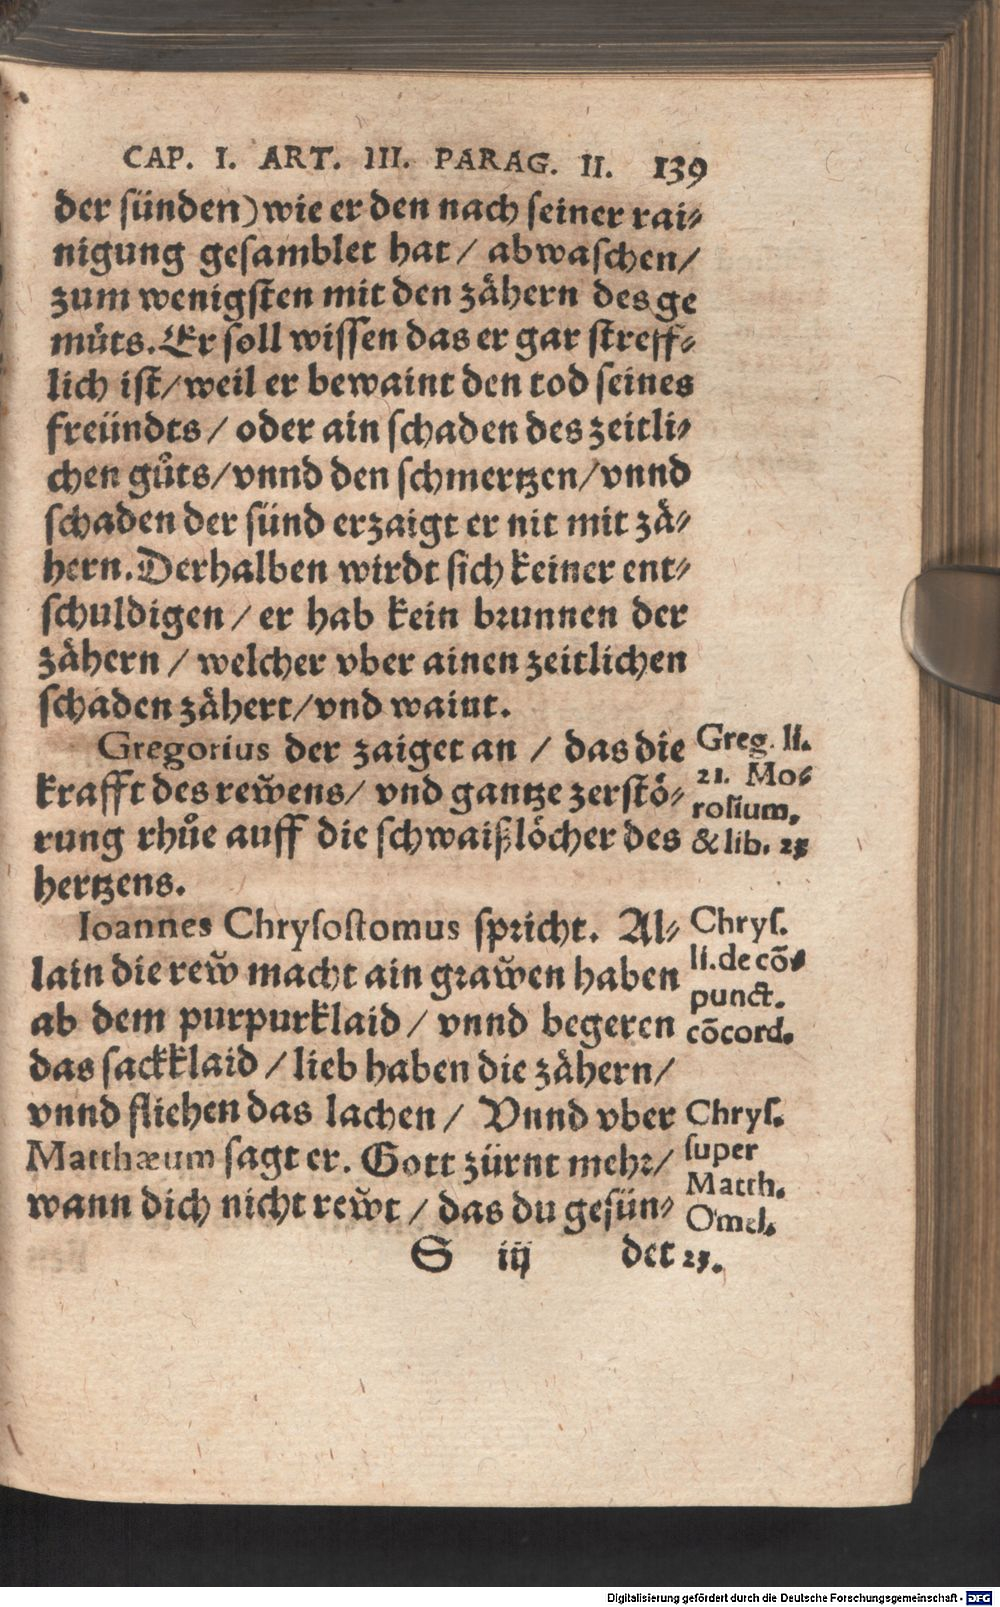 CAP. I. ART. III. PARAG. II. 139
der sünden) wie er den nach seiner rai⸗
nigung gesamblet hat / abwaschen /
zum wenigsten mit den zåhern des ge
můts. Er soll wissen das er gar streff⸗
lich ist / weil er bewaint den tod seines
freündts / oder ain schaden des zeitli⸗
chen gůts / vnnd den schmertzen / vnnd
schaden der sünd erzaigt er nit mit zå⸗
hern. Derhalben wirdt sich keiner ent⸗
schuldigen / er hab kein brunnen der
zåhern / welcher vber ainen zeitlichen
schaden zåhert / vnd waint.
Gregorius der zaiget an / das die
krafft des rew̌ens / vnd gantze zerstö⸗
rung rhůe auff die schwaißlöcher des
hertzens.
Greg. li.
21. Mo⸗
rosium.
& lib. 23
Ioannes Chrysostomus spricht. Al⸗
lain die rew̌ macht ain graw̌en haben
ab dem purpurklaid / vnnd begeren
das sackklaid / lieb haben die zåhern /
vnnd fliehen das lachen / Vnnd vber
Matthæum sagt er. Gott zürnt mehr /
wann dich nicht rew̌t / das du gesün⸗
Chrys.
li. de cõ⸗
punct.
cõcord.
Chrys.
super
Matth.
Omel.
23.
S iij det
Digitalisierung gefördert durch die Deutsche Forschungsgemeinschaft - DFG